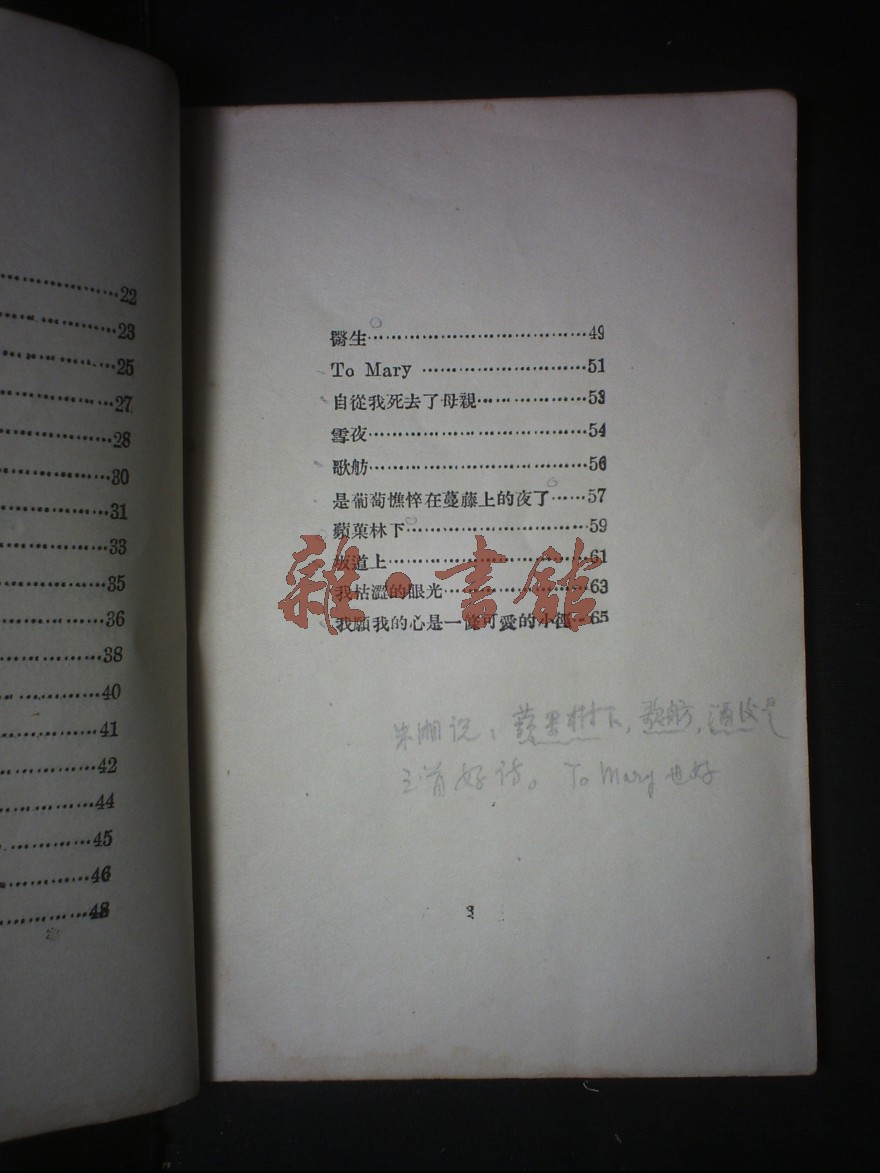 22
23
25
27
28
30
31
33
35
36
38
40
41
42
44
45
46
48
醫生··································49
To Mary ··························51
自從我死去了母親················53
雪夜··································54
歌舫··································56
是葡萄憔悴在蔓藤上的夜了······57
蘋菓林下····························59
坂道上······························61
我枯澀的眼光······················63
我願我的心是一條可愛的小徑···65
雜·書館
朱湘说:蘋果树下,歌舫,
三首好诗。To Mary 也好
3